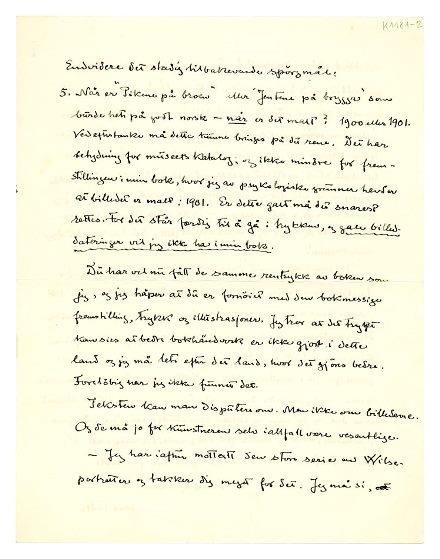 K1181-2
Endvidere det stadig tilbakevendende spörgmål:
5. Når er "Pikene på broen" eller "Jentene på brygga" som
burde hett på godt norsk – når er det malt? 1900 eller 1901.
må dette kunne bringes på det rene. Det har
betydning for museets katalog, og ikke mindre for frem-
stillingen i min bok, hvor jeg av psykologiske grunner hevder
at billedet er malt i 1901. Er dette galt må det snarest
rettes. For det står færdig til å gå i trykken, og gale billed-
dateringer vil jeg ikke ha i min bok.
Du har vel nu fått de samme rentrykk av boken som
jeg, og jeg håper at du er fornöiet med den bokmessige
fremstilling, trykk og illustrasjoner. Jeg tror at det trygt
kan sies at bedre bokhåndverk er ikke gjort i dette
land og jeg må lete efter det land, hvor det gjöres bedre.
Foreløbig har jeg ikke funnet det.
Teksten kan man disputere om. Men ikke om billederne.
Og de må jo for kunstneren selv iallfall være vesentlige.
– Jeg har iaften mottatt den store serie av Wilse-
portrætter og takker dig meget for det. Jeg må si,